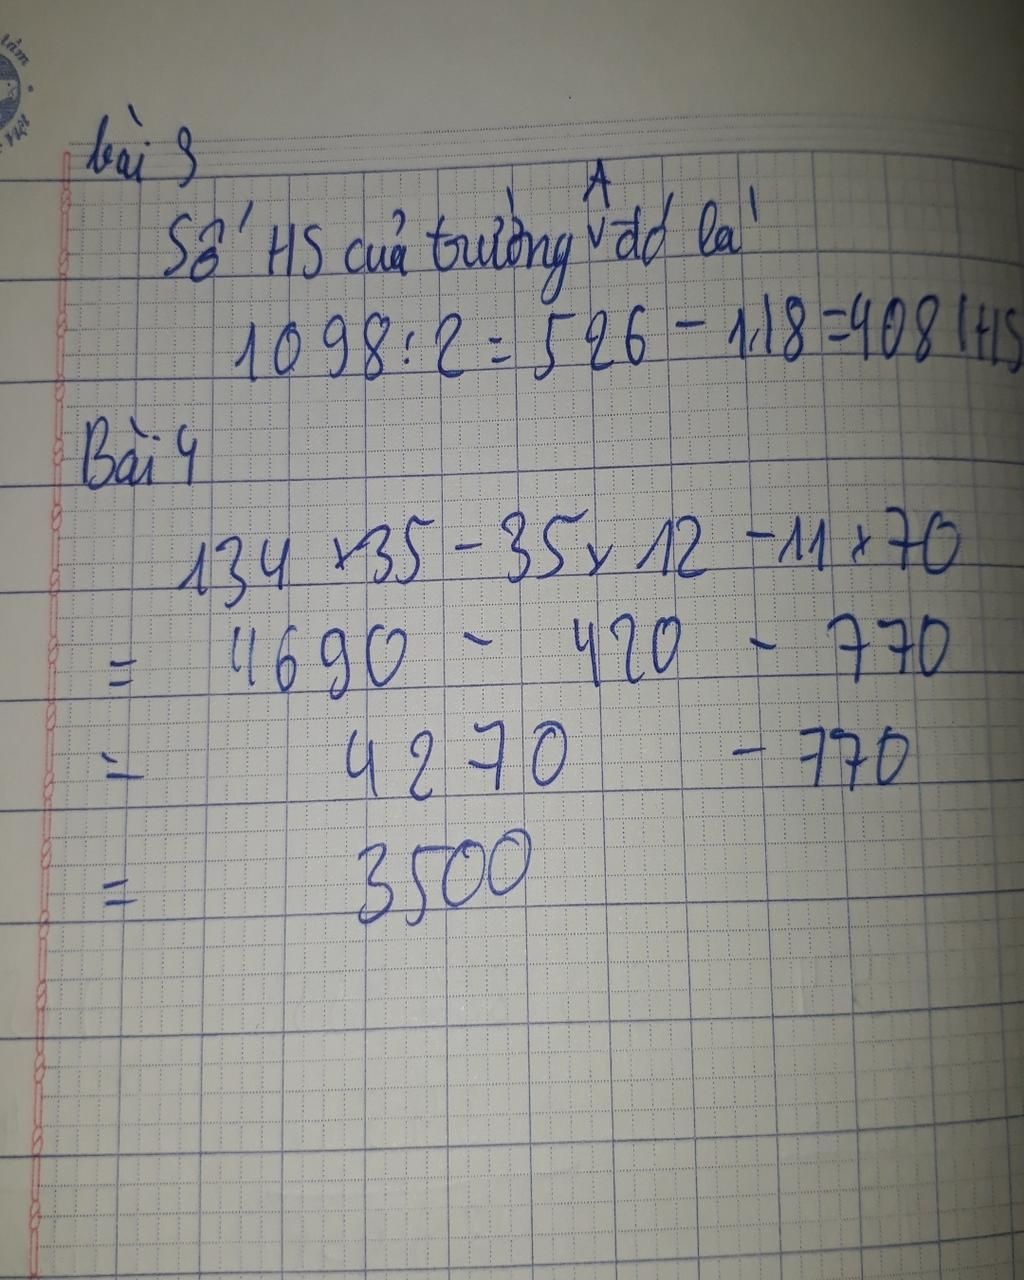 bài 3
A
Số HS của trường v đó là
1098 : 2 = 526 - 118 = 408 (HS
Bài 4
134 x 35 - 35 x 12 - 11 x 70
= 4690 - 420 - 770
= 4270 - 770
= 3500